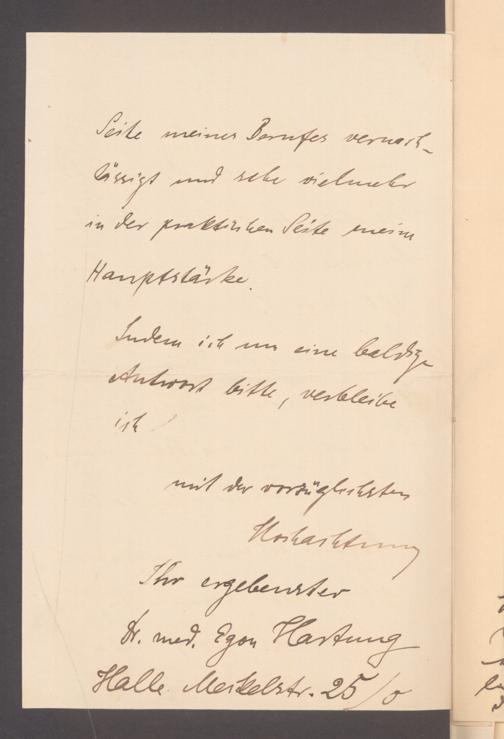 Seite meines Berufes vernach-
lässigt und sehe vielmehr
in der praktischen Seite meine
Hauptstärke.
Indem ich um eine baldige
Antwort bitte, verbleibe
ich
mit der vorzüglichsten
Hochachtung
Ihr ergebenster
Dr. med. Egon Hartung
Halle Meckelstr. 25